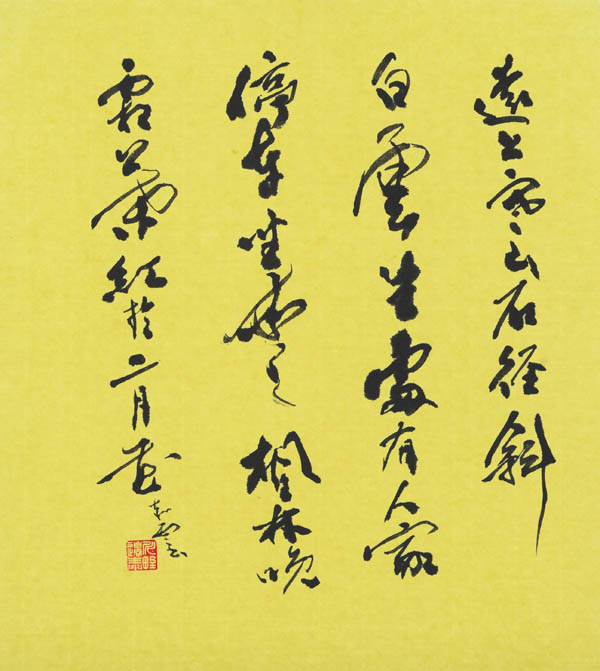 遠上寒山石径斜
白雲生處有人家
停車坐愛楓林晚
霜葉紅於二月花